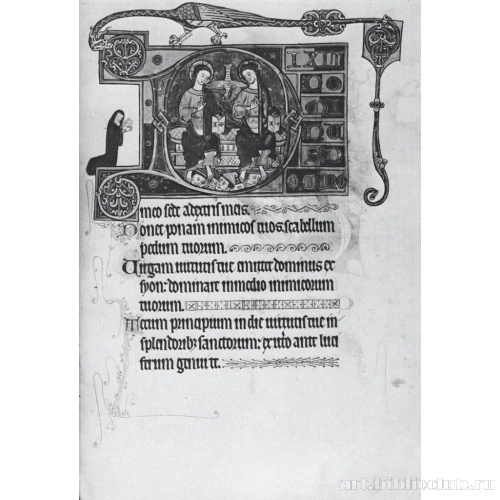 IXIT
meo sede adextris meis.
Donec ponam inimicos tuos: scabellum
pedum tuorum.
Uirgam uirtutis tue emittet dominus ex
syon: dominare inmedio inimicorum
tuorum.
Tecum principium in die uirtutis tue in
splendorib; sanctorum: ex ute͛o ante luci
ferum genui te.
art.biblioclub.ru